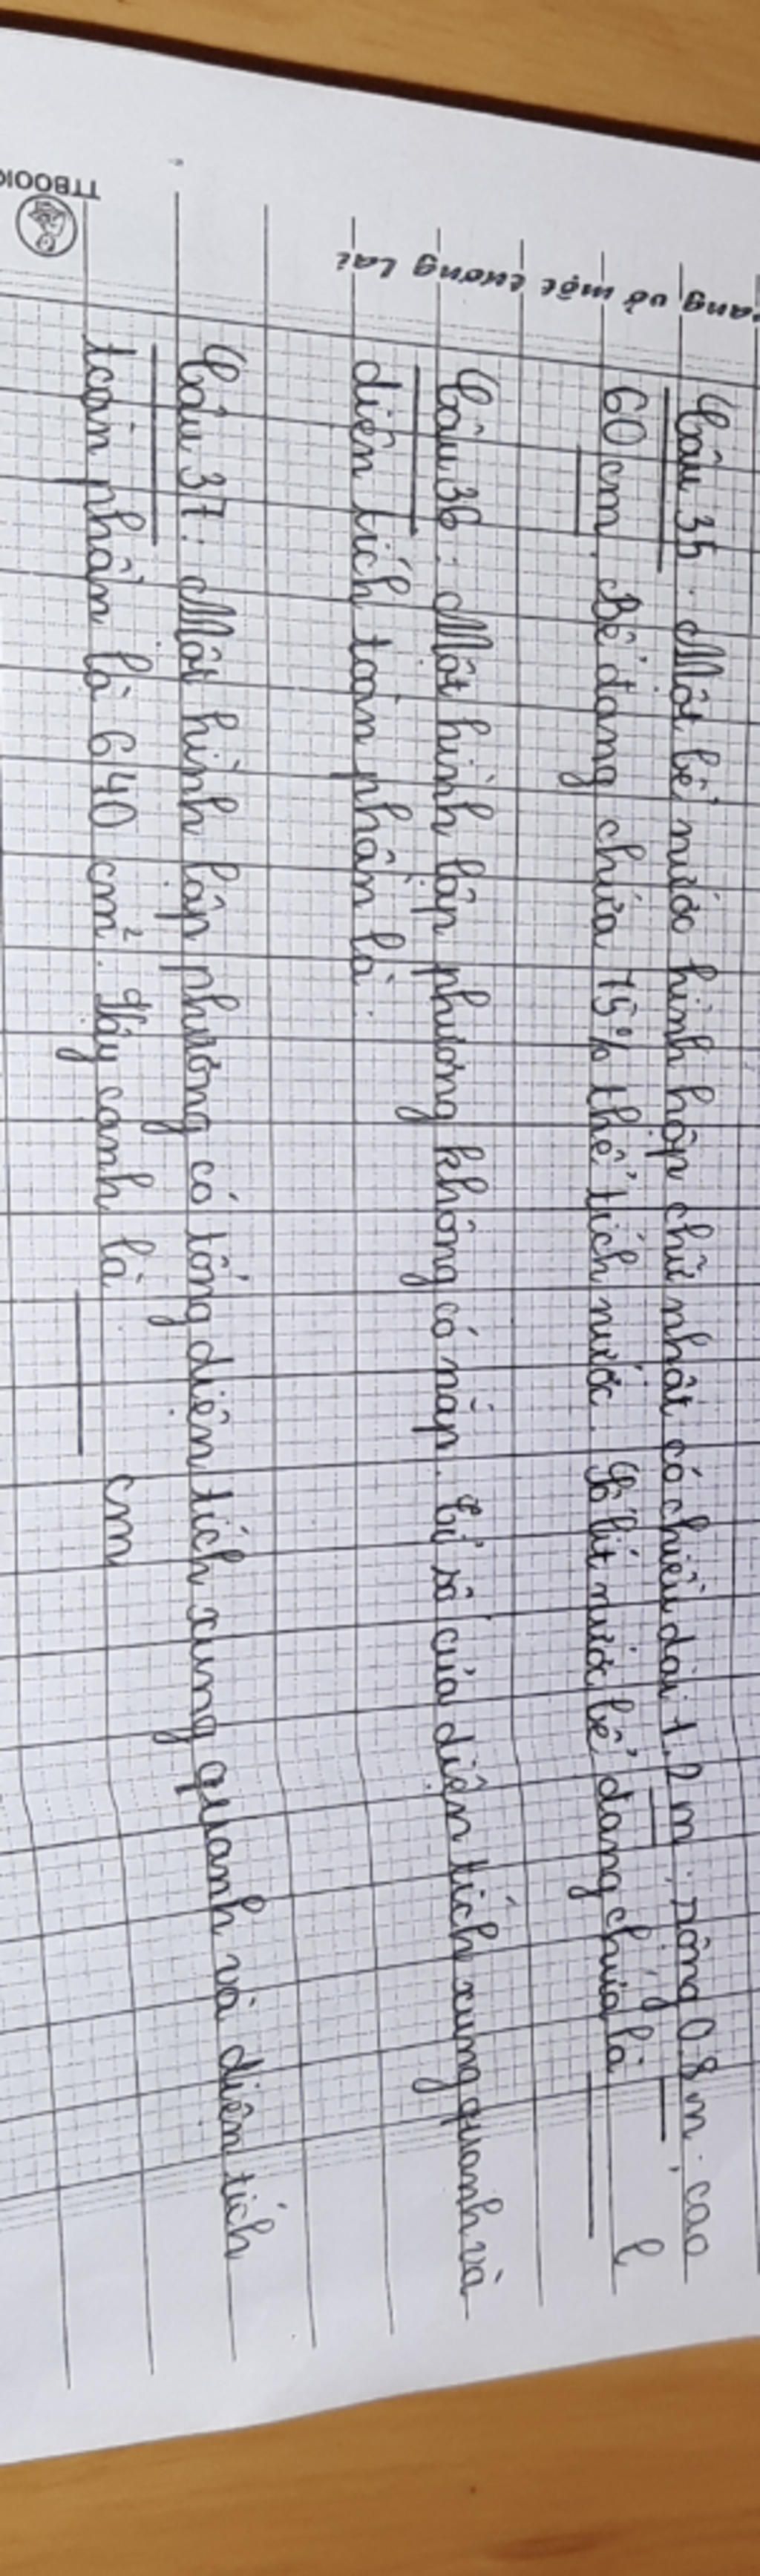 Câu 35: Một bể nước hình hộp chữ nhật có chiều dài 1,2 m; rộng 0,8 m; cao
60 cm. Bể đang chứa 75% thể tích nước. Số lít nước bể đang chứa là l
Câu 36: Một hình lập phương không có nắp. Tỉ số của diện tích xung quanh và
diện tích toàn phần là:
Câu 37: Một hình lập phương có tổng diện tích xung quanh và diện tích
toàn phần là 640 cm². Vậy cạnh là cm
trang vở một tương lai
TTBOOK